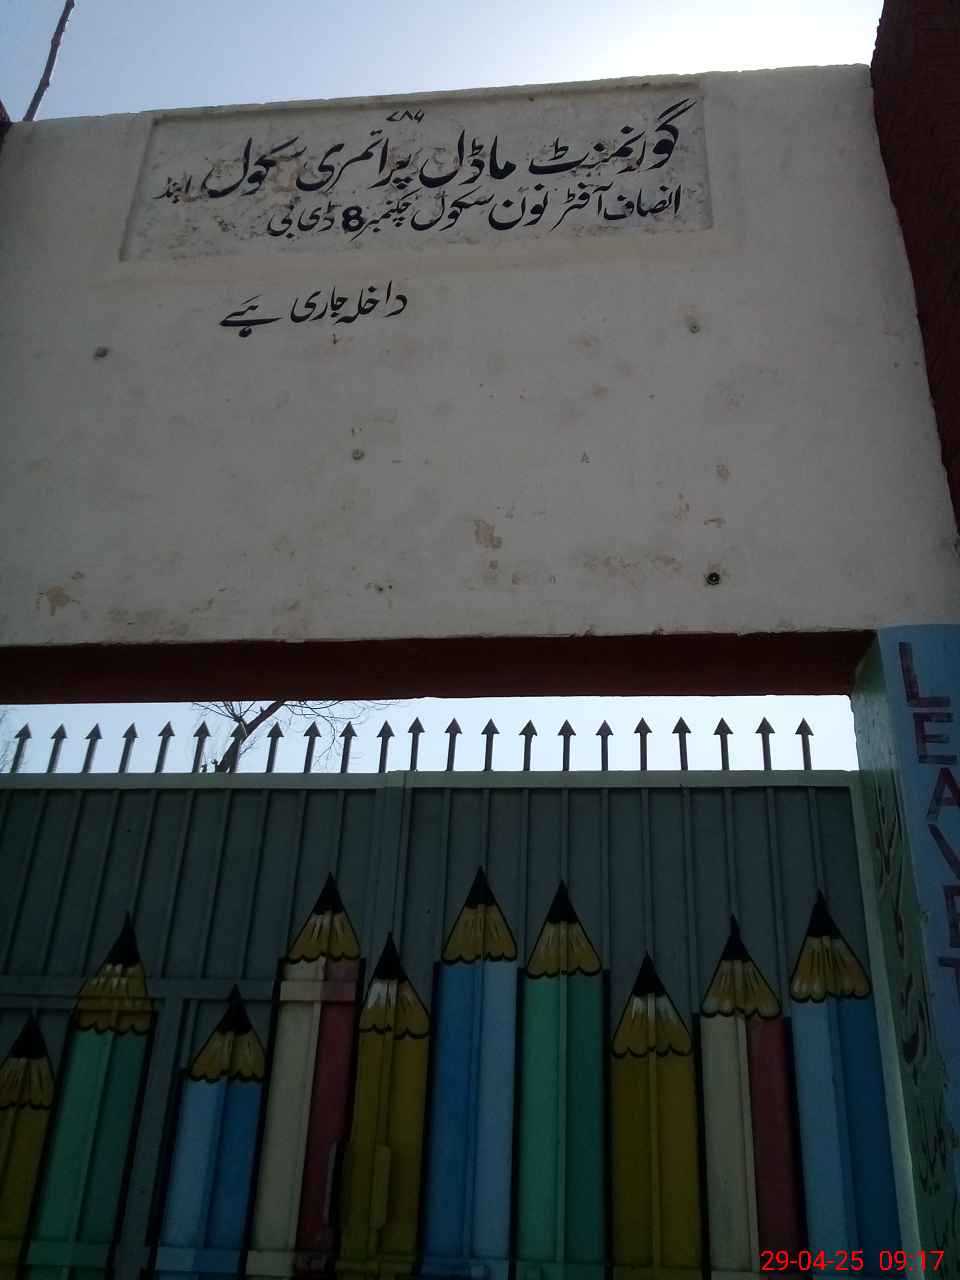 ۷۸۶
گورنمنٹ ماڈل پرائمری سکول اینڈ
انصاف آفٹر نون سکول چکنمبر 8 ڈی بی
داخلہ جاری ہے
LEAVE
29-04-25 09:17